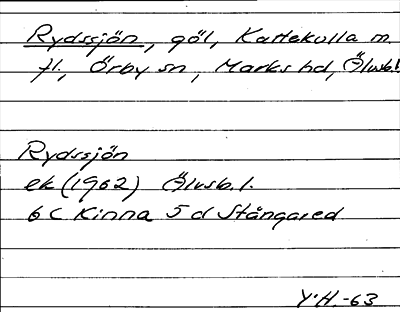 Rydssjön, göl, Kattekulla m.
fl., Örby sn, Marks hd, Älvsb.l.
Rydssjön
ek (1962) Älvsb.l.
6 C Kinna 5 d Stångared
Y.H.-63